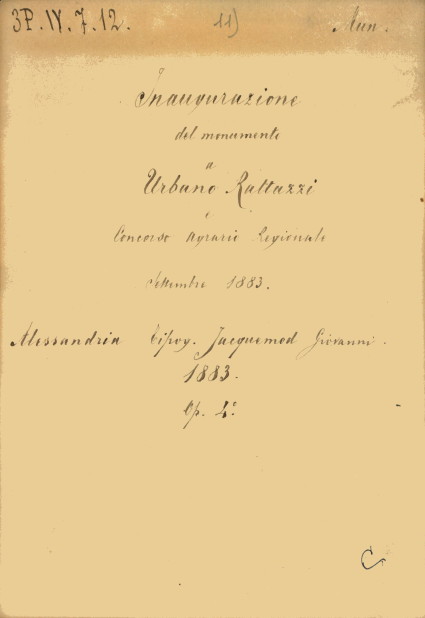 3P.IV.7.12. 11) Mun.
Inaugurazione
del monumento
a
Urbano Rattazzi
e
Concorso Agrario Regionale
Settembre 1883.
Alessandria Tipog. Jacquemod Giovanni.
1883.
Op. 4°
C